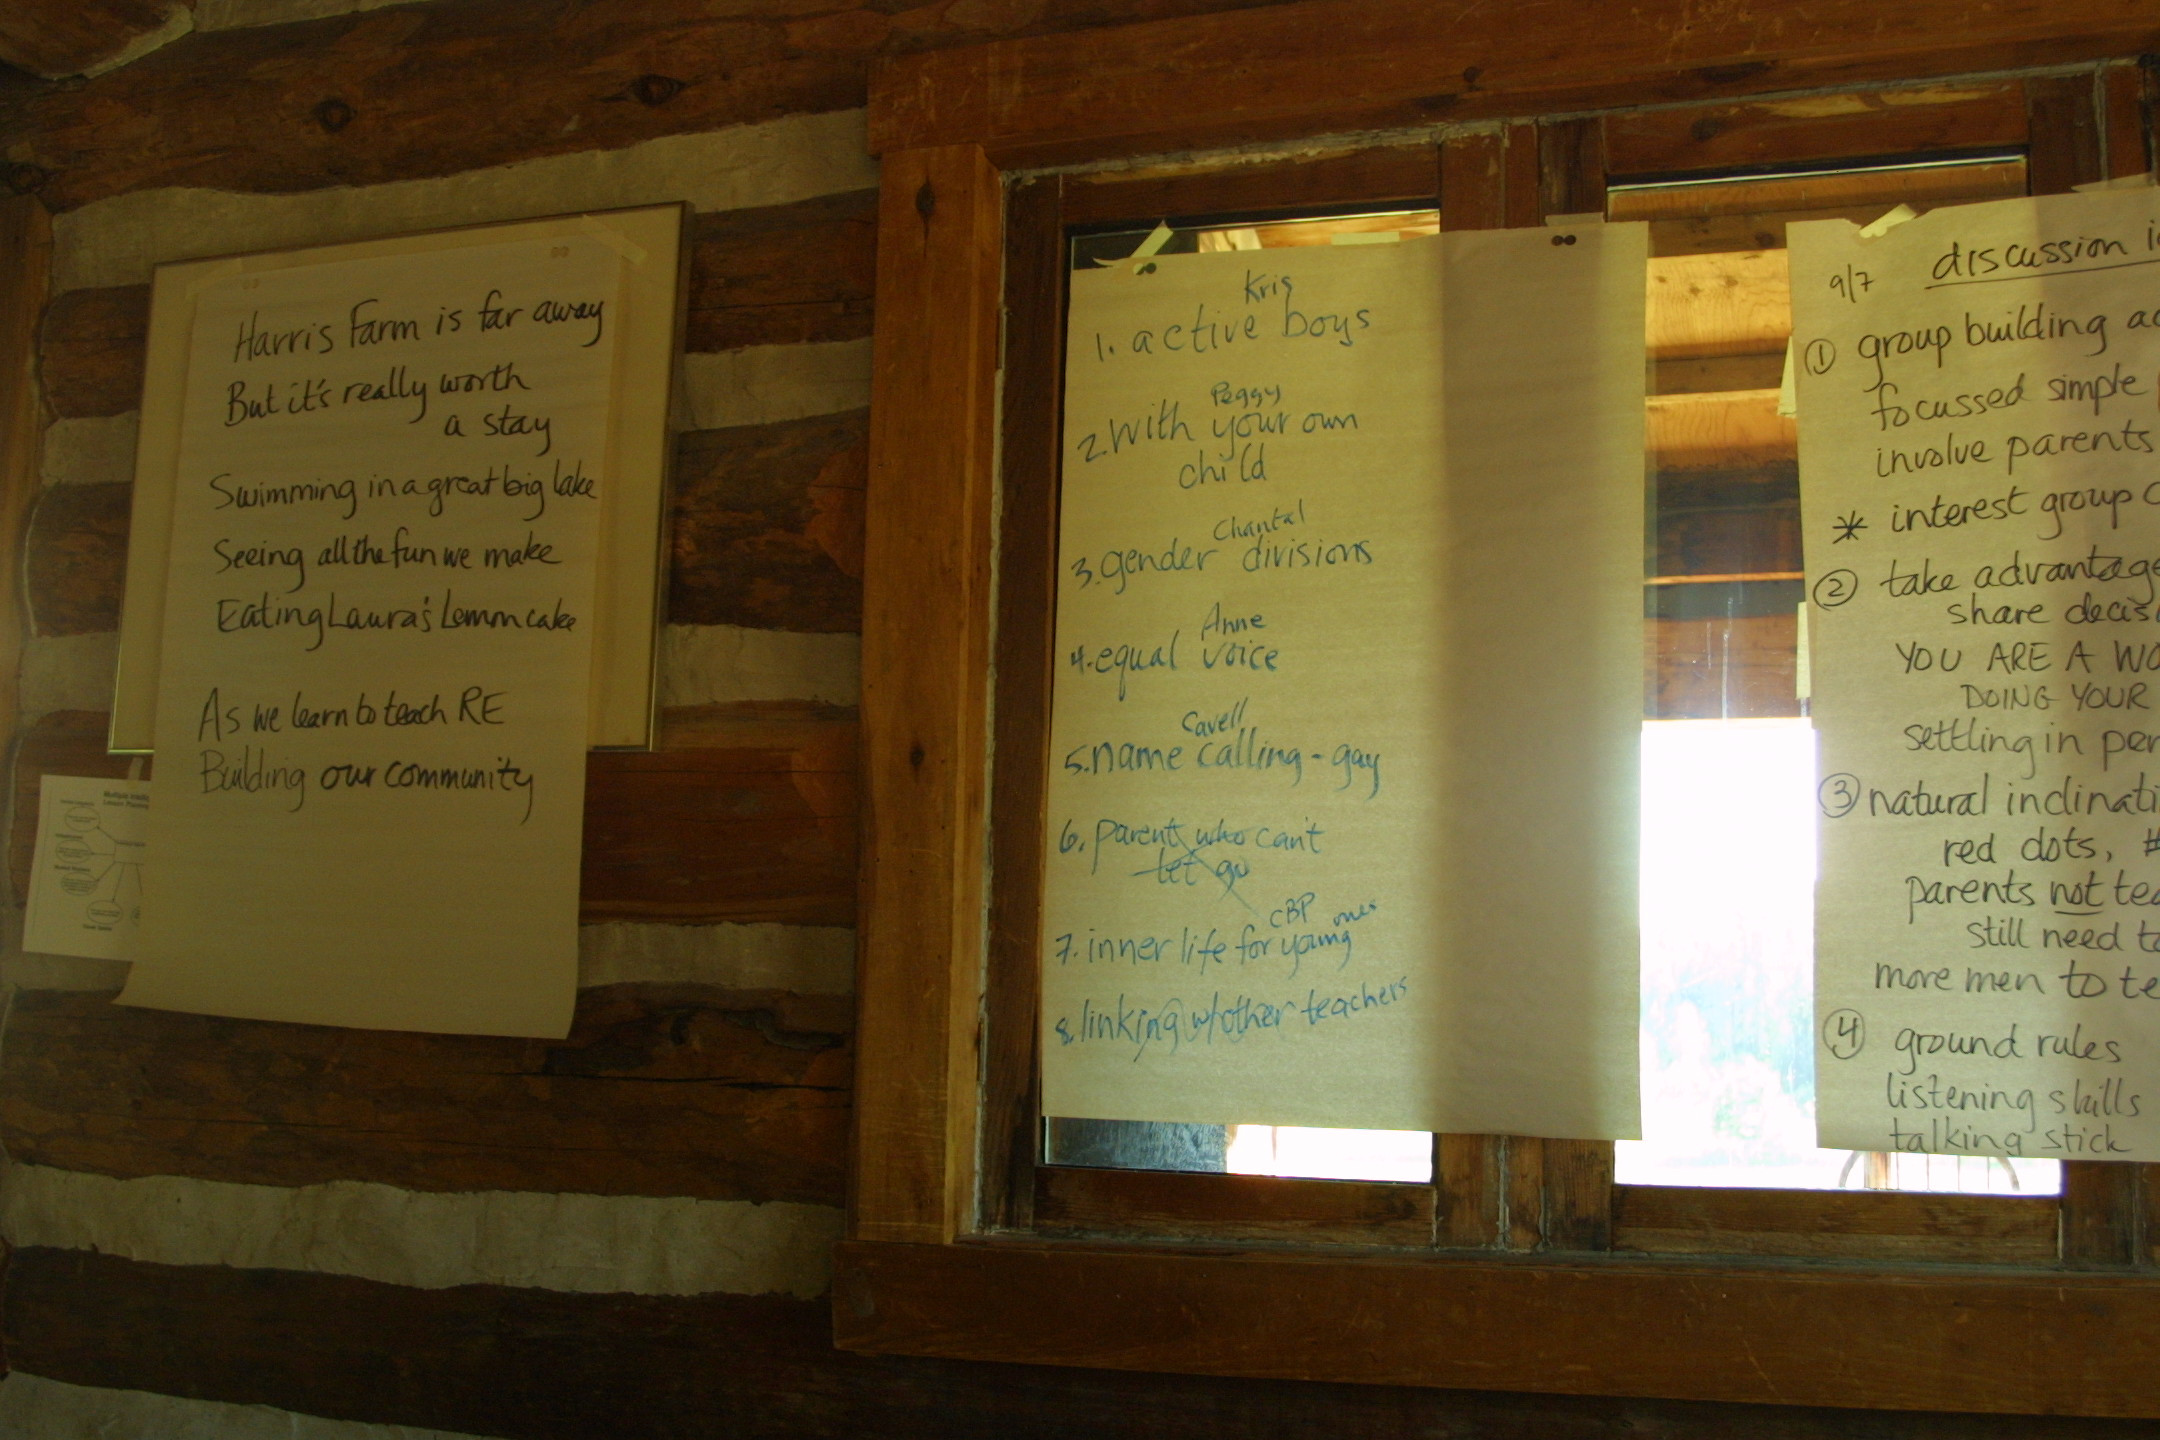 Harris Farm is far away
But it's really worth
a stay
Swimming in a great big lake
Seeing all the fun we make
Eating Laura's Lemon cake
As we learn to teach RE
Building our community
Kris
1. active boys
Peggy
2. With your own
child
Chantal
3. gender divisions
Anne
4. equal voice
Cavell
5. name calling - gay
6. parent who can't
let go
CBP ones
7. inner life for young
8. linking w/other teachers
9/7 discussion
① group building
focussed simple
involve parents
* interest group
② take advantage
share
YOU ARE A
DOING YOUR
settling in
③ natural
red dots, #
parents not
still need
more men to
④ ground rules
listening skills
talking stick